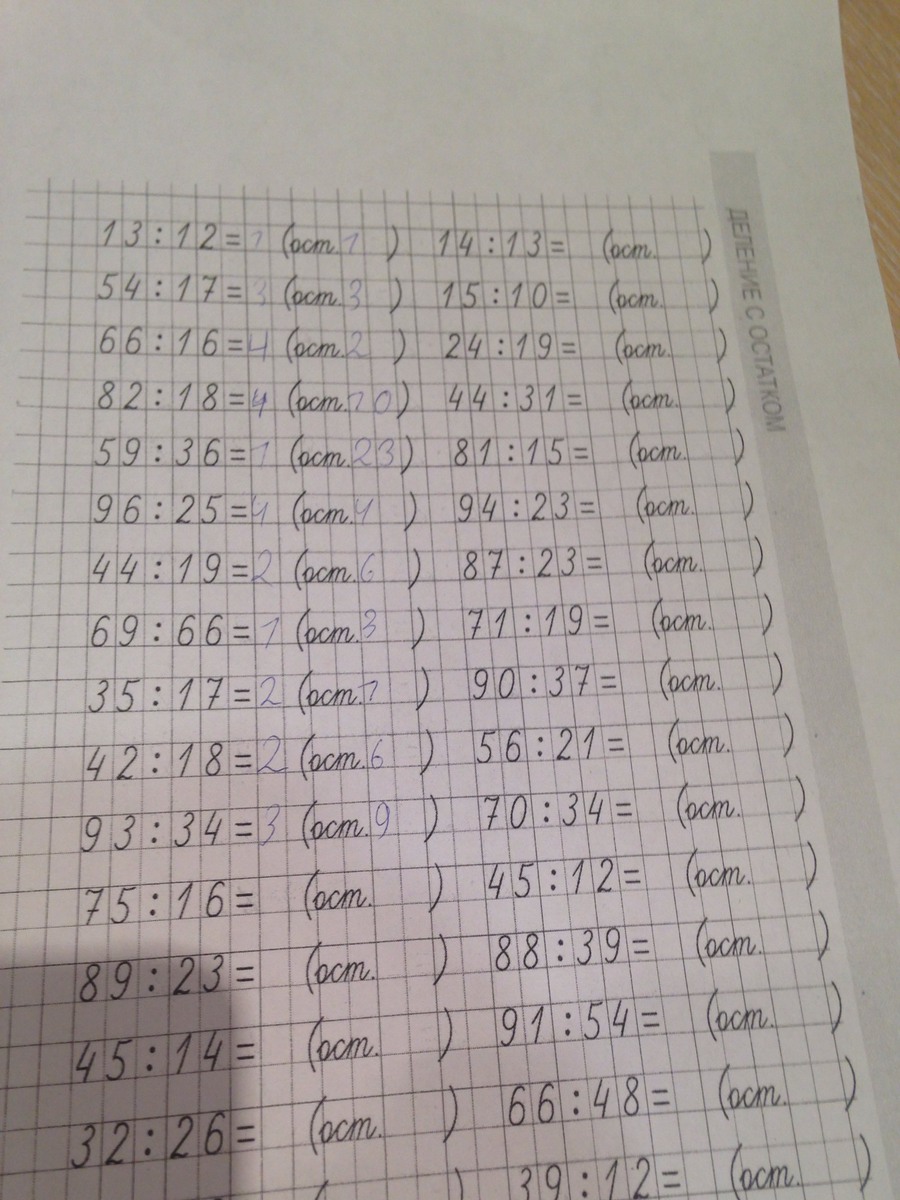 ДЕЛЕНИЕ С ОСТАТКОМ
13:12=1 (ост.1) 14:13= (ост. )
54:17=3 (ост.3) 15:10= (ост. )
66:16=4 (ост.2) 24:19= (ост. )
82:18=4 (ост.10) 44:31= (ост. )
59:36=1 (ост.23) 81:15= (ост. )
96:25=4 (ост.4) 94:23= (ост. )
44:19=2 (ост.6) 87:23= (ост. )
69:66=1 (ост.3) 71:19= (ост. )
35:17=2 (ост.1) 90:37= (ост. )
42:18=2 (ост.6) 56:21= (ост. )
93:34=3 (ост.9) 70:34= (ост. )
75:16= (ост. ) 45:12= (ост. )
89:23= (ост. ) 88:39= (ост. )
45:14= (ост. ) 91:54= (ост. )
32:26= (ост. ) 66:48= (ост. )
39:12= (ост. )